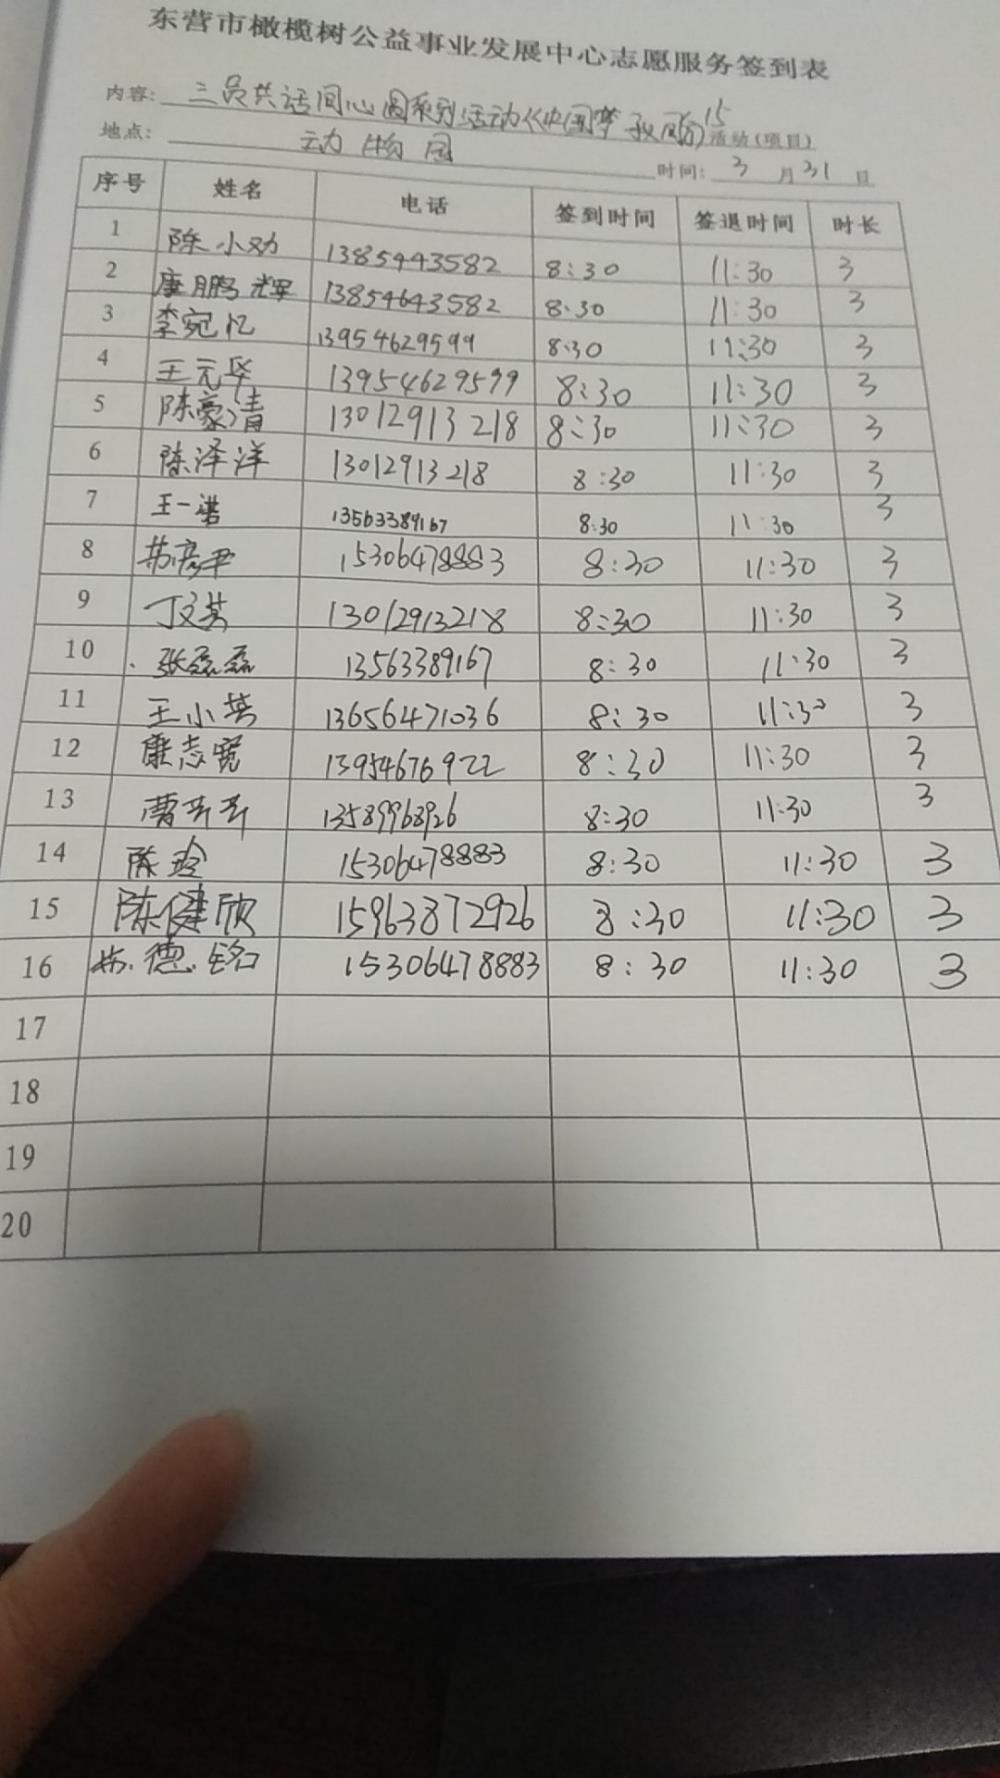 东营市橄榄树公益事业发展中心志愿服务签到表
内容: 三员共话同心圆系列活动《中国梦 活动(项目)
地点: 动物园 时间: 3 月 31 日
序号 姓名 电话 签到时间 签退时间 时长
1 陈小劝 13854443582 8:30 11:30 3
2 康鹏辉 13854643582 8:30 11:30 3
3 李宛忆 13954629599 8:30 11:30 3
4 王元华 13954629599 8:30 11:30 3
5 陈豪清 13012913218 8:30 11:30 3
6 陈泽洋 13012913218 8:30 11:30 3
7 王一诺 13563389167 8:30 11:30 3
8 苏彦尹 15306478883 8:30 11:30 3
9 丁文英 13012913218 8:30 11:30 3
10 张磊磊 13563389167 8:30 11:30 3
11 王小英 13656471036 8:30 11:30 3
12 康志宽 13954676922 8:30 11:30 3
13 曹芳芳 13589968926 8:30 11:30 3
14 陈玲 15306478883 8:30 11:30 3
15 陈健欣 15963872926 8:30 11:30 3
16 苏德铭 15306478883 8:30 11:30 3
17
18
19
20